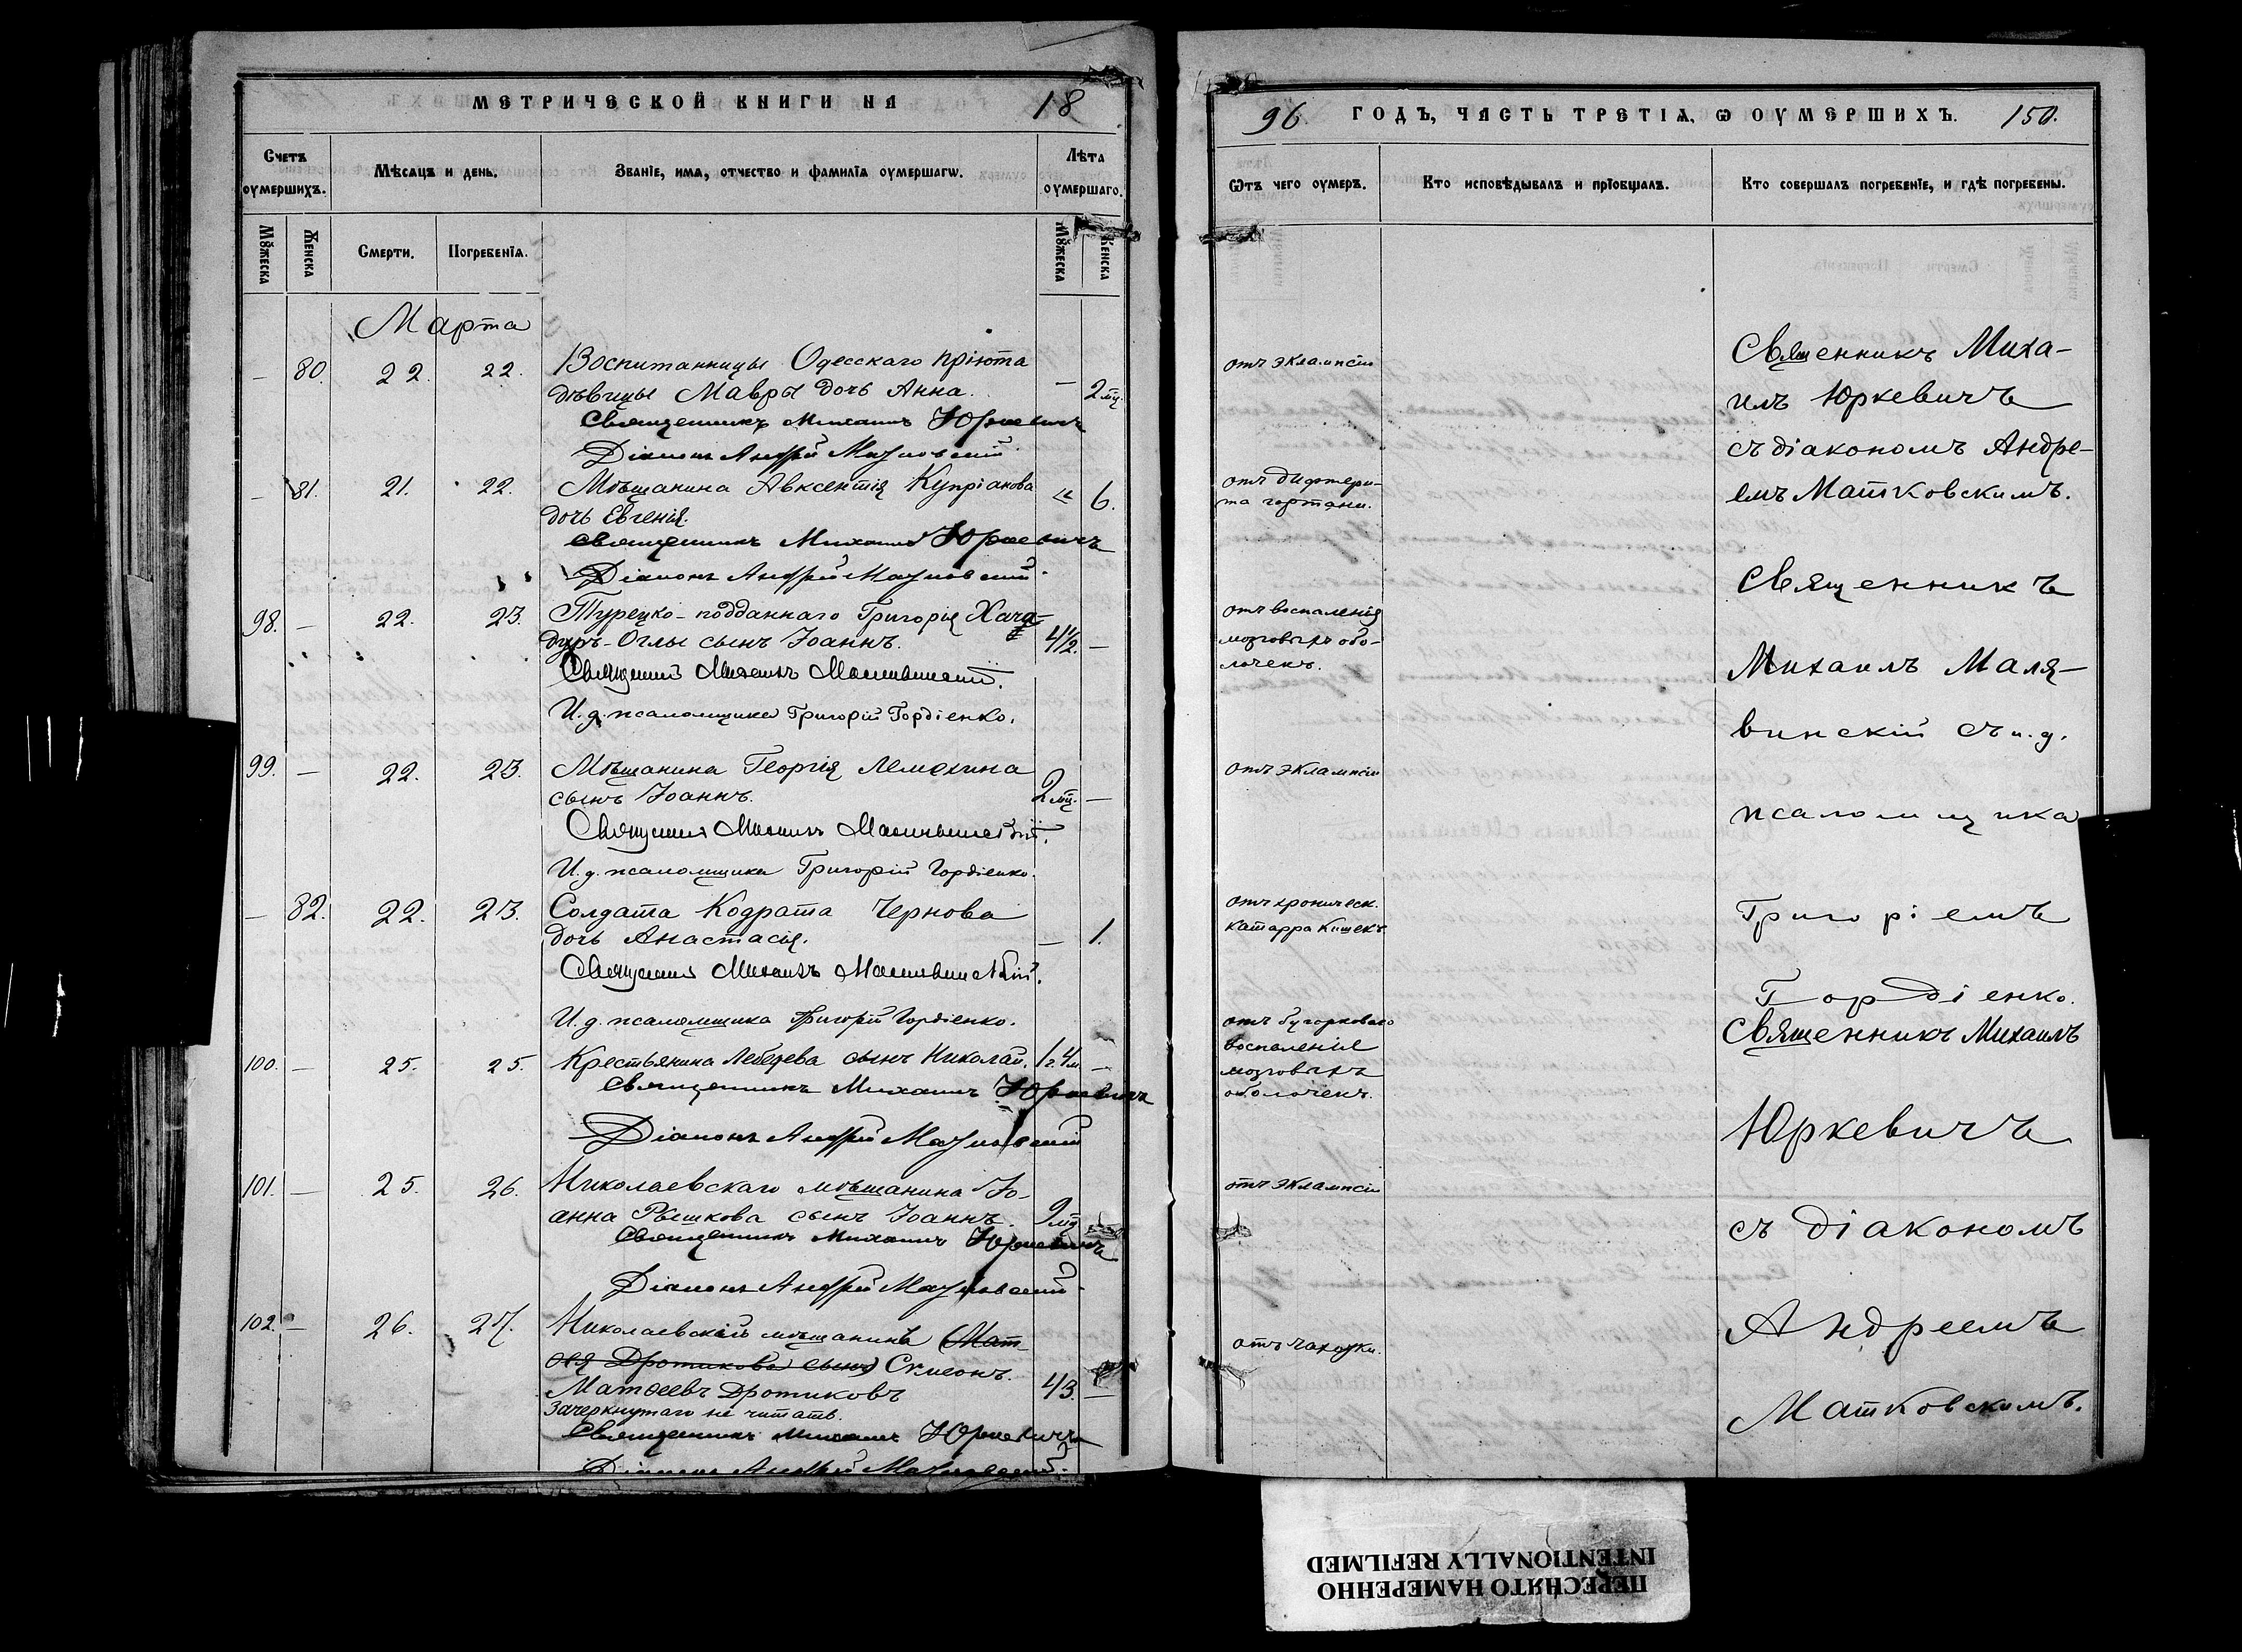 МЕТРИЧЕСКОЙ КНИГИ НА 18
Счетъ оумершихъ.
Мѣсяцъ и день.
Званіе, имя, отчество и фамилія оумершагѡ.
Лѣта оумершаго.
Мꙋжеска
Женска
Смерти.
Погребенія.
Мꙋжеска
Женска
Марта
— 80. 22. 22. Воспитанницы Одесскаго пріюта
дѣвицы Мавры дочь Анна. — 2 мц.
Священникъ Михаилъ Юркевичъ
Діаконъ Андрей Матковскій
— 81. 21. 22. Мѣщанина Авксентія Купріанова
дочь Евгенія. « 6.
Священникъ Михаилъ Юркевичъ
Діаконъ Андрей Матковскій
98. — 22. 23. Турецко-подданнаго Григорія Хача-
дуръ-Оглы сынъ Іоаннъ. 4½. —
Священникъ Михаилъ Малявинскій.
И. д. псаломщика Григорій Гордіенко.
99. — 22. 23. Мѣщанина Георгія Лемехина
сынъ Іоаннъ. 2 мц. —
Священникъ Михаилъ Малявинскій.
И. д. псаломщика Григорій Гордіенко.
— 82. 22. 23. Солдата Кодрата Чернова
дочь Анастасія. — 1.
Священникъ Михаилъ Малявинскій.
И. д. псаломщика Григорій Гордіенко.
100. — 25. 25. Крестьянина Лебедева сынъ Николай. 1 г. 4 м —
Священникъ Михаилъ Юркевичъ
Діаконъ Андрей Матковскій
101. — 25. 26. Николаевскаго мѣщанина Іо-
анна Рѣшкова сынъ Іоаннъ. 9 мц —
Священникъ Михаилъ Юркевичъ
Діаконъ Андрей Матковскій
102. — 26. 27. Николаевскій мѣщанинъ (Мат-
ѳея Дротикова сынъ) Симеонъ
Матѳеевъ Дротиковъ 43. —
Зачеркнутаго не читать.
Священникъ Михаилъ Юркевичъ
Діаконъ Андрей Матковскій
96. ГОДЪ, ЧАСТЬ ТРЕТІЯ, Ѡ ОУМЕРШИХЪ. 150.
Ѿтъ чего оумеръ.
Кто исповѣдывалъ и пріобщалъ.
Кто совершалъ погребеніе, и гдѣ погребены.
отъ эклампсіи
отъ дифтери-
та гортани.
отъ воспаленія
мозговыхъ обо-
лочекъ.
отъ эклампсіи
отъ хроническ.
катарра кишекъ
отъ бугорковаго
воспаленія
мозговыхъ
оболочекъ.
отъ эклампсіи
отъ чахотки.
Священникъ Миха-
илъ Юркевичъ
съ діакономъ Андре-
емъ Матковскимъ.
Священникъ
Михаилъ Маля-
винскій съ и. д.
псаломщика
Григоріемъ
Гордіенко.
Священникъ Михаилъ
Юркевичъ
съ діакономъ
Андреемъ
Матковскимъ.
ПЕРЕСНЯТО НАМЕРЕННО
INTENTIONALLY REFILMED